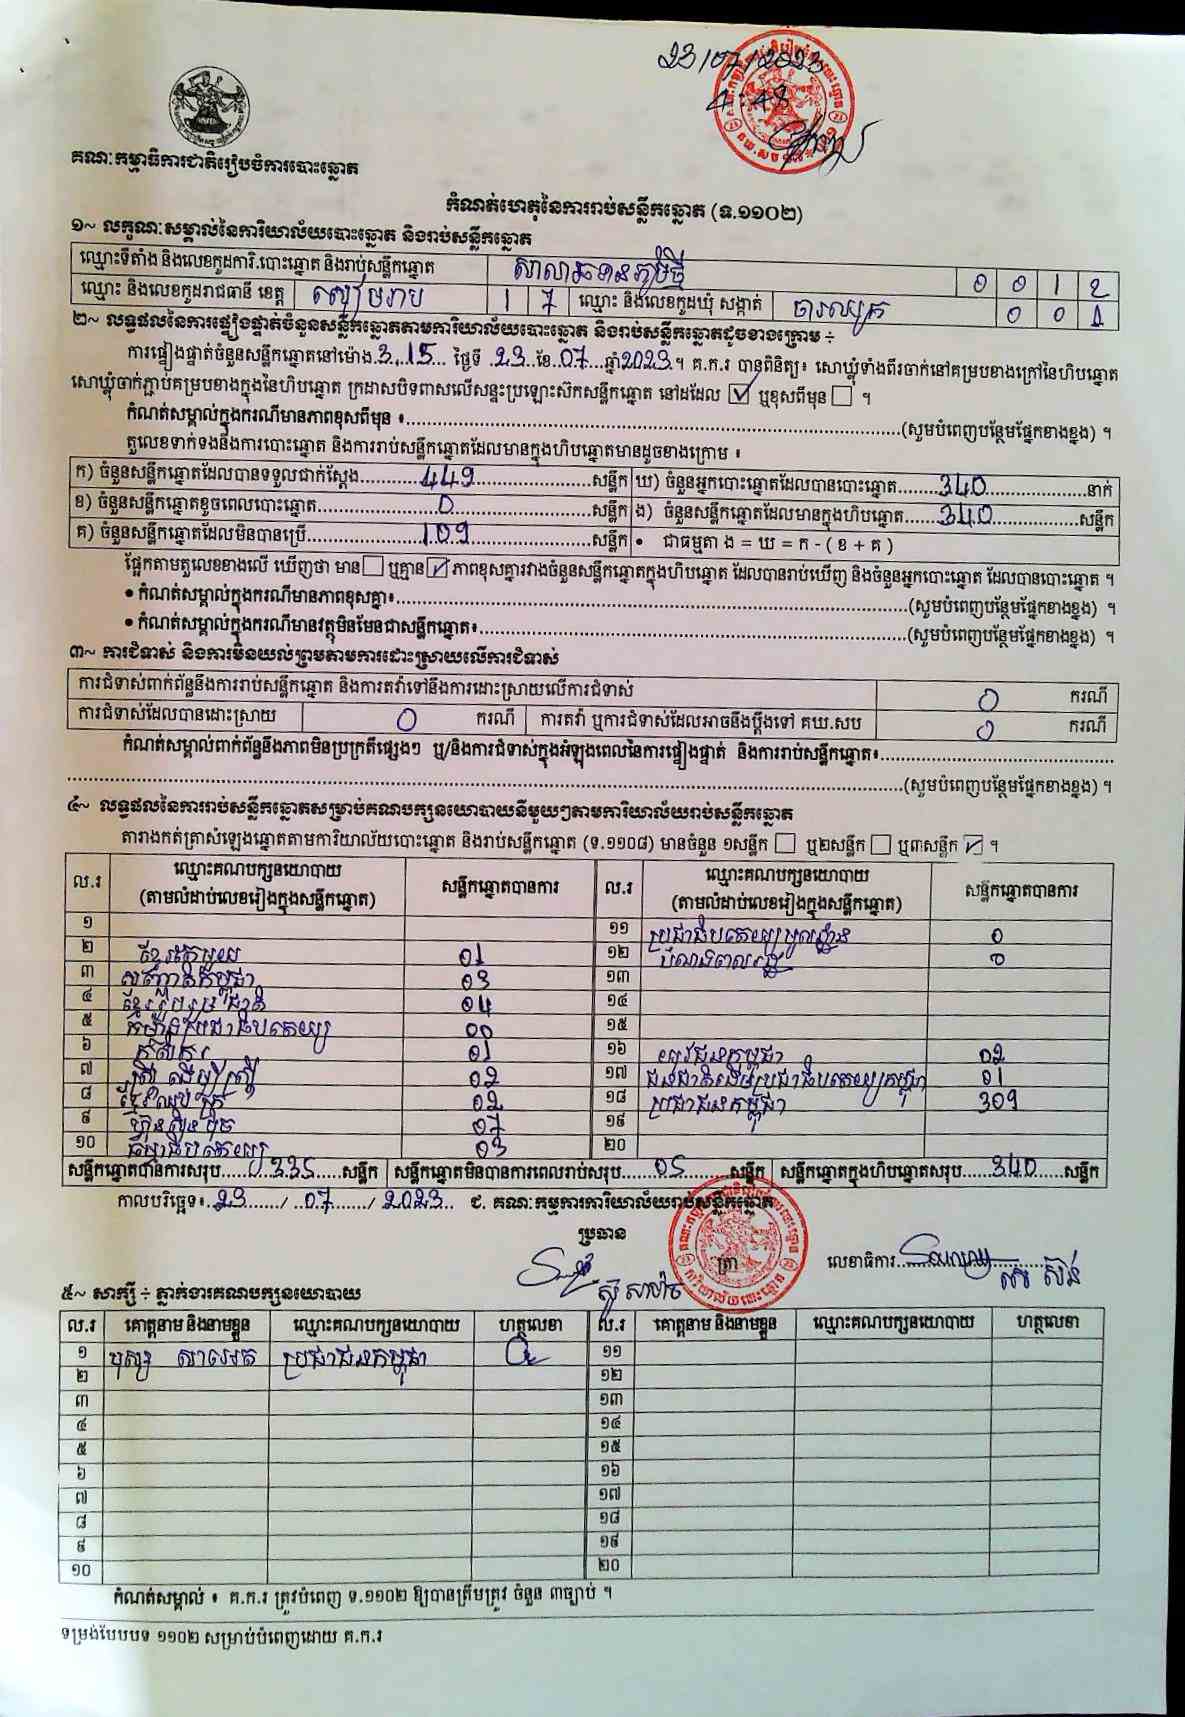 23/07/2023
4:48
គណៈកម្មាធិការជាតិរៀបចំការបោះឆ្នោត
កំណត់ហេតុនៃការរាប់សន្លឹកឆ្នោត (ទ.១១០២)
១~ លក្ខណៈសម្គាល់នៃការិយាល័យបោះឆ្នោត និងរាប់សន្លឹកឆ្នោត
ឈ្មោះទីតាំង និងលេខកូដការិ.បោះឆ្នោត និងរាប់សន្លឹកឆ្នោត សាលាឆទានភូមិថ្មី 0 0 1 2
ឈ្មោះ និងលេខកូដរាជធានី ខេត្ត សៀមរាប 1 7 ឈ្មោះ និងលេខកូដឃុំ សង្កាត់ 0 0 1
២~ លទ្ធផលនៃការផ្ទៀងផ្ទាត់ចំនួនសន្លឹកឆ្នោតតាមការិយាល័យបោះឆ្នោត និងរាប់សន្លឹកឆ្នោតដូចខាងក្រោម ÷
ការផ្ទៀងផ្ទាត់ចំនួនសន្លឹកឆ្នោតនៅម៉ោង 3:15 ថ្ងៃទី 23 ខែ 07 ឆ្នាំ 2023 ។ គ.ក.រ បានពិនិត្យ៖ សោឃ្លុំទាំងពីរចាក់នៅគម្របខាងក្រៅនៃហិបឆ្នោត
សោឃ្លុំចាក់ភ្ជាប់គម្របខាងក្នុងនៃហិបឆ្នោត ក្រដាសបិទពាសលើសន្ទះប្រឡោះស៊កសន្លឹកឆ្នោត នៅដដែល ☑ ឬខុសពីមុន ☐ ។
កំណត់សម្គាល់ក្នុងករណីមានភាពខុសពីមុន ៖ (សូមបំពេញបន្ថែមផ្នែកខាងខ្នង) ។
តួលេខទាក់ទងនឹងការបោះឆ្នោត និងការរាប់សន្លឹកឆ្នោតដែលមានក្នុងហិបឆ្នោតមានដូចខាងក្រោម ៖
ក) ចំនួនសន្លឹកឆ្នោតដែលបានទទួលជាក់ស្តែង 449 សន្លឹក ឃ) ចំនួនអ្នកបោះឆ្នោតដែលបានបោះឆ្នោត 340 នាក់
ខ) ចំនួនសន្លឹកឆ្នោតខូចពេលបោះឆ្នោត 0 សន្លឹក ង) ចំនួនសន្លឹកឆ្នោតដែលមានក្នុងហិបឆ្នោត 340 សន្លឹក
គ) ចំនួនសន្លឹកឆ្នោតដែលមិនបានប្រើ 109 សន្លឹក • ជាធម្មតា ង = ឃ = ក - ( ខ + គ )
ផ្អែកតាមតួលេខខាងលើ ឃើញថា មាន ☐ ឬគ្មាន ☑ ភាពខុសគ្នារវាងចំនួនសន្លឹកឆ្នោតក្នុងហិបឆ្នោត ដែលបានរាប់ឃើញ និងចំនួនអ្នកបោះឆ្នោត ដែលបានបោះឆ្នោត ។
• កំណត់សម្គាល់ក្នុងករណីមានភាពខុសគ្នា៖ (សូមបំពេញបន្ថែមផ្នែកខាងខ្នង) ។
• កំណត់សម្គាល់ក្នុងករណីមានវត្ថុមិនមែនជាសន្លឹកឆ្នោត៖ (សូមបំពេញបន្ថែមផ្នែកខាងខ្នង) ។
៣~ ការជំទាស់ និងការមិនយល់ព្រមតាមការដោះស្រាយលើការជំទាស់
ការជំទាស់ពាក់ព័ន្ធនឹងការរាប់សន្លឹកឆ្នោត និងការតវ៉ាទៅនឹងការដោះស្រាយលើការជំទាស់ 0 ករណី
ការជំទាស់ដែលបានដោះស្រាយ 0 ករណី ការតវ៉ា ឬការជំទាស់ដែលអាចនឹងប្តឹងទៅ គឃ.សប 0 ករណី
កំណត់សម្គាល់ពាក់ព័ន្ធនឹងភាពមិនប្រក្រតីផ្សេងៗ ឬ/និងការជំទាស់ក្នុងអំឡុងពេលនៃការផ្ទៀងផ្ទាត់ និងការរាប់សន្លឹកឆ្នោត៖
(សូមបំពេញបន្ថែមផ្នែកខាងខ្នង) ។
៤~ លទ្ធផលនៃការរាប់សន្លឹកឆ្នោតសម្រាប់គណបក្សនយោបាយនីមួយៗតាមការិយាល័យរាប់សន្លឹកឆ្នោត
តារាងកត់ត្រាសំឡេងឆ្នោតតាមការិយាល័យបោះឆ្នោត និងរាប់សន្លឹកឆ្នោត (ទ.១១០៨) មានចំនួន ១សន្លឹក ☐ ឬ២សន្លឹក ☐ ឬ៣សន្លឹក ☑ ។
ល.រ ឈ្មោះគណបក្សនយោបាយ (តាមលំដាប់លេខរៀងក្នុងសន្លឹកឆ្នោត) សន្លឹកឆ្នោតបានការ ល.រ ឈ្មោះគណបក្សនយោបាយ (តាមលំដាប់លេខរៀងក្នុងសន្លឹកឆ្នោត) សន្លឹកឆ្នោតបានការ
១ ១១ ប្រជាធិបតេយ្យមូលដ្ឋាន 0
២ ខ្មែរតែមួយ 01 ១២ 0
៣ សញ្ជាតិកម្ពុជា 03 ១៣
៤ ខ្មែររួបរួមជាតិ 04 ១៤
៥ កម្លាំងប្រជាធិបតេយ្យ 00 ១៥
៦ កសិករ 01 ១៦ យុវជនកម្ពុជា 02
៧ ស្ត្រីដើម្បីស្ត្រី 02 ១៧ ជនជាតិដើមប្រជាធិបតេយ្យកម្ពុជា 01
៨ ខ្មែរឈប់ក្រ 02 ១៨ ប្រជាជនកម្ពុជា 309
៩ ហ៊្វុនស៊ិនប៉ិច 07 ១៩
១០ ធម្មាធិបតេយ្យ 03 ២០
សន្លឹកឆ្នោតបានការសរុប 335 សន្លឹក សន្លឹកឆ្នោតមិនបានការពេលរាប់សរុប 05 សន្លឹក សន្លឹកឆ្នោតក្នុងហិបឆ្នោតសរុប 340 សន្លឹក
កាលបរិច្ឆេទ៖ 23 / 07 / 2023 ជ. គណៈកម្មការការិយាល័យរាប់សន្លឹកឆ្នោត
ប្រធាន
ត្រា លេខាធិការ
៥~ សាក្សី ÷ ភ្នាក់ងារគណបក្សនយោបាយ
ល.រ គោត្តនាម និងនាមខ្លួន ឈ្មោះគណបក្សនយោបាយ ហត្ថលេខា ល.រ គោត្តនាម និងនាមខ្លួន ឈ្មោះគណបក្សនយោបាយ ហត្ថលេខា
១ ប្រជាជនកម្ពុជា ១១
២ ១២
៣ ១៣
៤ ១៤
៥ ១៥
៦ ១៦
៧ ១៧
៨ ១៨
៩ ១៩
១០ ២០
កំណត់សម្គាល់ ៖ គ.ក.រ ត្រូវបំពេញ ទ.១១០២ ឱ្យបានត្រឹមត្រូវ ចំនួន ៣ច្បាប់ ។
ទម្រង់បែបបទ ១១០២ សម្រាប់បំពេញដោយ គ.ក.រ